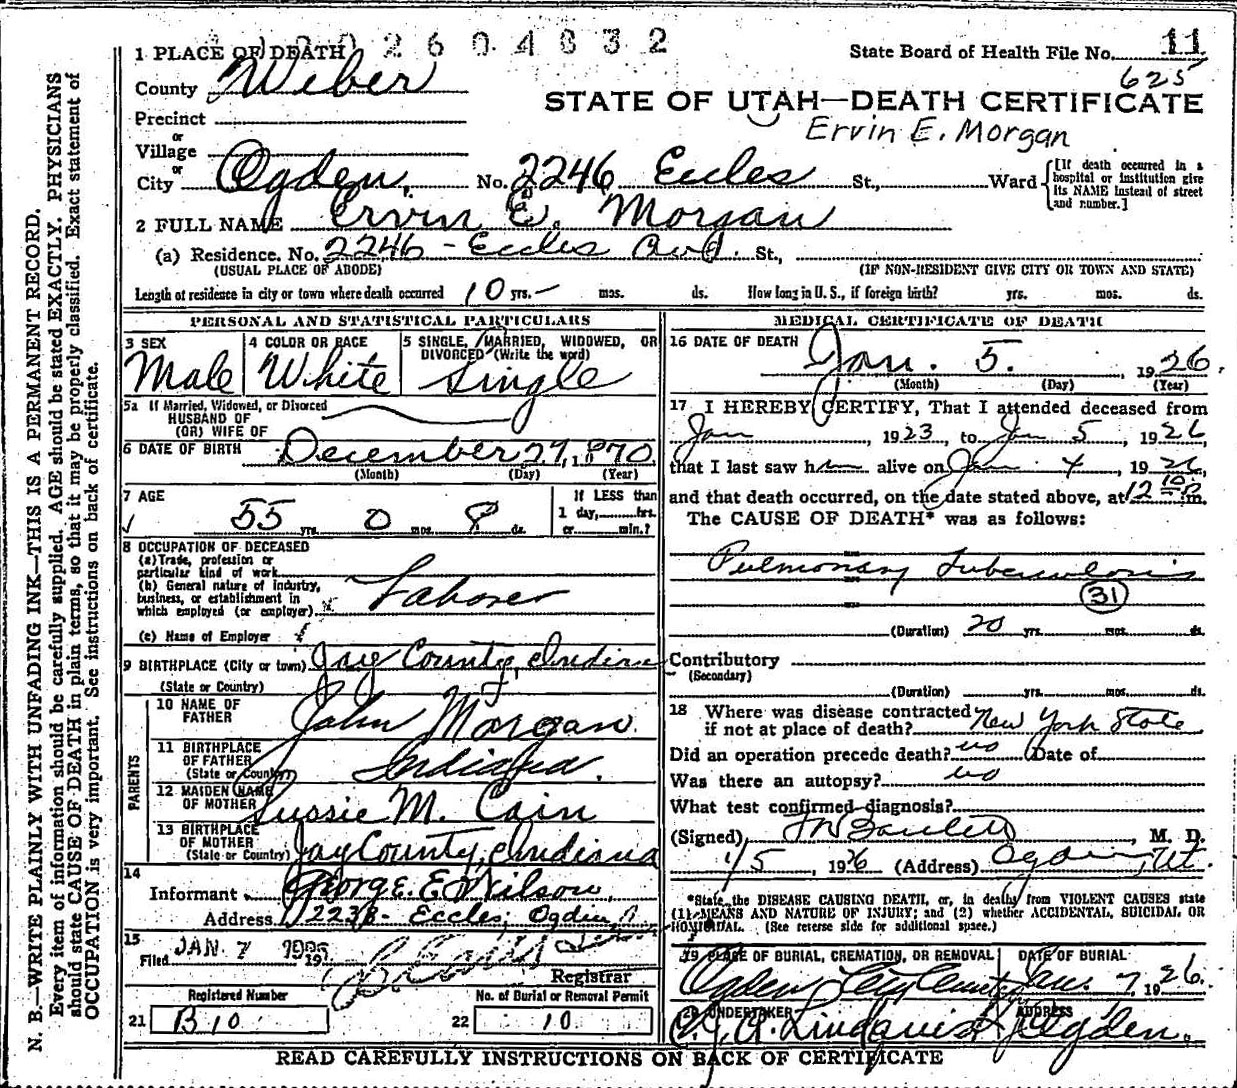 1 PLACE OF DEATH
2604832
State Board of Health File No. 11
County Weber
625
STATE OF UTAH—DEATH CERTIFICATE
Precinct
Ervin E. Morgan
or
Village
or
City Ogden, No. 2246 Eccles St., Ward
[If death occurred in a hospital or institution give its NAME instead of street and number.]
2 FULL NAME Ervin E. Morgan
(a) Residence. No. 2246 - Eccles Ave. St.,
(USUAL PLACE OF ABODE) (IF NON-RESIDENT GIVE CITY OR TOWN AND STATE)
Length of residence in city or town where death occurred 10 yrs. — mos. ds. How long in U. S., if foreign birth? yrs. mos. ds.
PERSONAL AND STATISTICAL PARTICULARS
3 SEX Male
4 COLOR OR RACE White
5 SINGLE, MARRIED, WIDOWED, OR DIVORCED (Write the word) Single
5a If Married, Widowed, or Divorced
HUSBAND OF
(OR) WIFE OF
6 DATE OF BIRTH December 27, 1870
(Month) (Day) (Year)
7 AGE 55 yrs. 0 mos. 8 ds.
If LESS than
1 day, hrs.
or min.?
8 OCCUPATION OF DECEASED
(a) Trade, profession or
particular kind of work
(b) General nature of industry,
business, or establishment in
which employed (or employer) Laborer
(c) Name of Employer
9 BIRTHPLACE (City or town) Jay County, Indiana
(State or Country)
PARENTS
10 NAME OF FATHER John Morgan
11 BIRTHPLACE OF FATHER (State or Country) Indiana.
12 MAIDEN NAME OF MOTHER Sussie M. Cain
13 BIRTHPLACE OF MOTHER (State or Country) Jay County, Indiana
14 Informant George E. Wilson
Address 2238 - Eccles, Ogden
15 Filed JAN 7 19
Registrar
Registered Number
21 B 10
No. of Burial or Removal Permit
22 10
MEDICAL CERTIFICATE OF DEATH
16 DATE OF DEATH Jan. 5. , 1926.
(Month) (Day) (Year)
17 I HEREBY CERTIFY, That I attended deceased from
Jan 1923, to Jan 5, 1926,
that I last saw him alive on Jan. 4, 1926,
and that death occurred, on the date stated above, at 12 10 m.
The CAUSE OF DEATH* was as follows:
Pulmonary Tuberculosis
31
(Duration) 20 yrs. mos. ds.
Contributory
(Secondary)
(Duration) yrs. mos. ds.
18 Where was disease contracted
if not at place of death? New York State
Did an operation precede death? no Date of
Was there an autopsy? no
What test confirmed diagnosis?
(Signed) , M. D.
1/5, 1926 (Address) Ogden, Ut.
*State the DISEASE CAUSING DEATH, or, in deaths from VIOLENT CAUSES state
(1) MEANS AND NATURE OF INJURY; and (2) whether ACCIDENTAL, SUICIDAL OR
HOMICIDAL. (See reverse side for additional space.)
19 PLACE OF BURIAL, CREMATION, OR REMOVAL Ogden City
DATE OF BURIAL Jan. 7, 1926.
20 UNDERTAKER Lindquist
ADDRESS Ogden.
READ CAREFULLY INSTRUCTIONS ON BACK OF CERTIFICATE
N. B.—WRITE PLAINLY WITH UNFADING INK—THIS IS A PERMANENT RECORD.
Every item of information should be carefully supplied. AGE should be stated EXACTLY. PHYSICIANS
should state CAUSE OF DEATH in plain terms, so that it may be properly classified. Exact statement of
OCCUPATION is very important. See instructions on back of certificate.